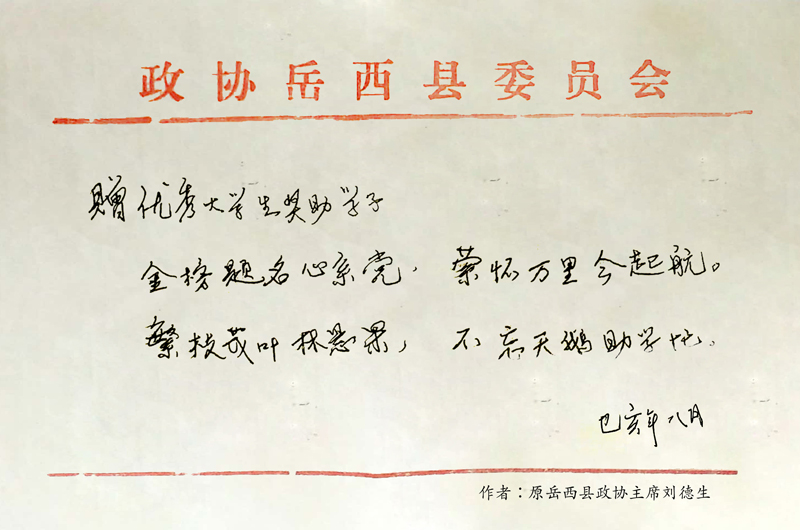 政协岳西县委员会
赠优秀大学生奖助学子
金榜题名心系党，荣怀万里今起航。
繁枝茂叶林果，不忘天鹅助学忙。
己亥年八月
作者：原岳西县政协主席刘德生